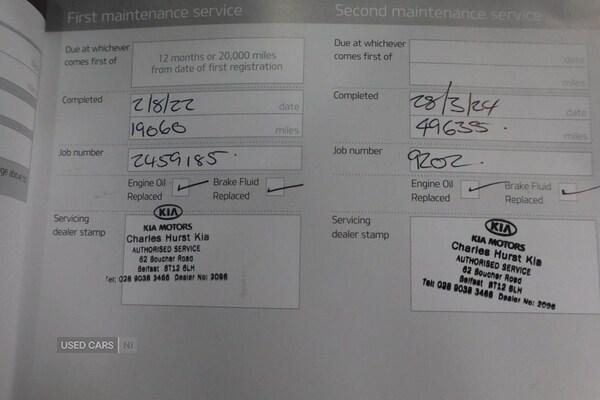 First maintenance service
Due at whichever
comes first of
12 months or 20,000 miles
from date of first registration
Completed
2/8/22 date
19060 miles
Job number
2459185.
Engine Oil
Replaced
Brake Fluid
Replaced
Servicing
dealer stamp
KIA
KIA MOTORS
Charles Hurst Kia
AUTHORISED SERVICE
62 Boucher Road
Belfast BT12 6LH
Tel: 028 9038 3466 Dealer No: 2096
Second maintenance service
Due at whichever
comes first of
date
miles
Completed
28/3/24 date
49635. miles
Job number
9202.
Engine Oil
Replaced
Brake Fluid
Replaced
Servicing
dealer stamp
KIA
KIA MOTORS
Charles Hurst Kia
AUTHORISED SERVICE
62 Boucher Road
Belfast BT12 6LH
Tel: 028 9038 3466 Dealer No: 2096
USED CARS NI